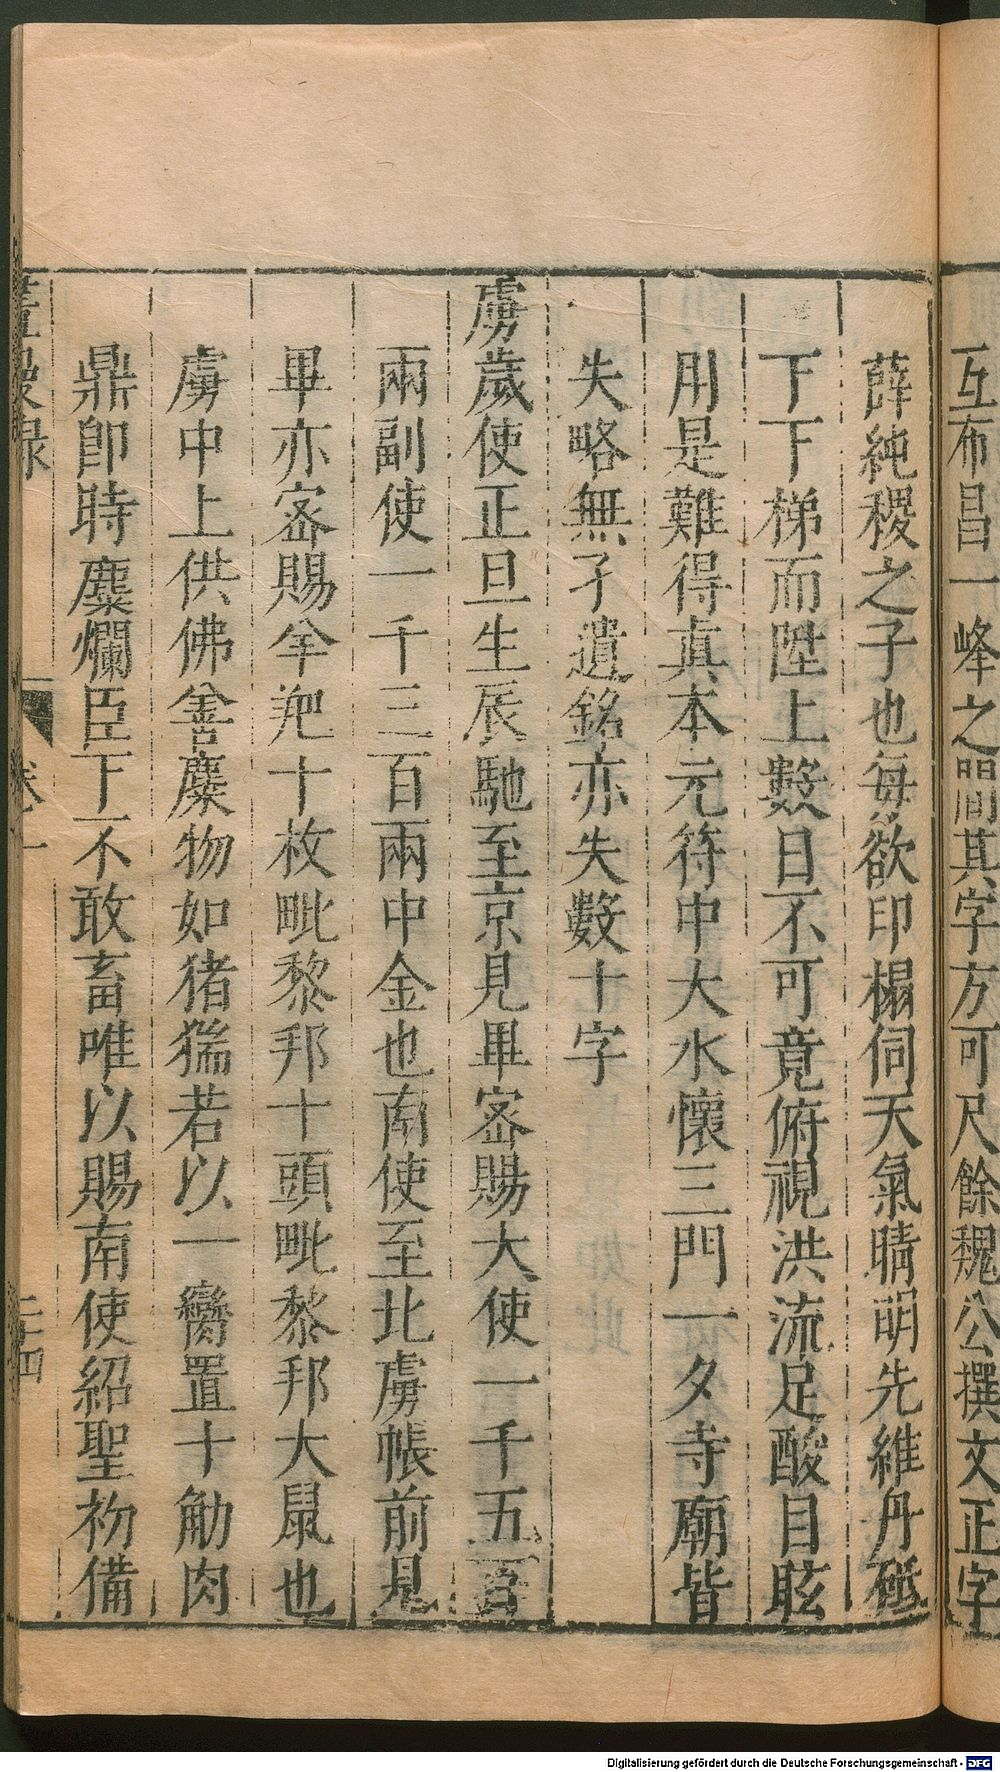 互布昌一峰之間其字方可尺餘魏公撰文正字
薛純稷之子也每欲印榻伺天氣晴明先維丹砥
下下梯而陞上數日不可竟俯視洪流足酸目眩
用是難得真本元符中大水懷三門一夕寺廟皆
失略無孑遺銘亦失數十字
虜歲使正旦生辰馳至京見畢密賜大使一千五百
兩副使一千三百兩中金也南使至北虜帳前見
畢亦密賜羊羓十枚毗黎邦十頭毗黎邦大鼠也
虜中上供佛善麋物如猪猯若以一臠置十觔肉
鼎即時麋爛臣下不敢畜唯以賜南使紹聖初備
墁録
卷之一
二十四
Digitalisierung gefördert durch die Deutsche Forschungsgemeinschaft - DFG